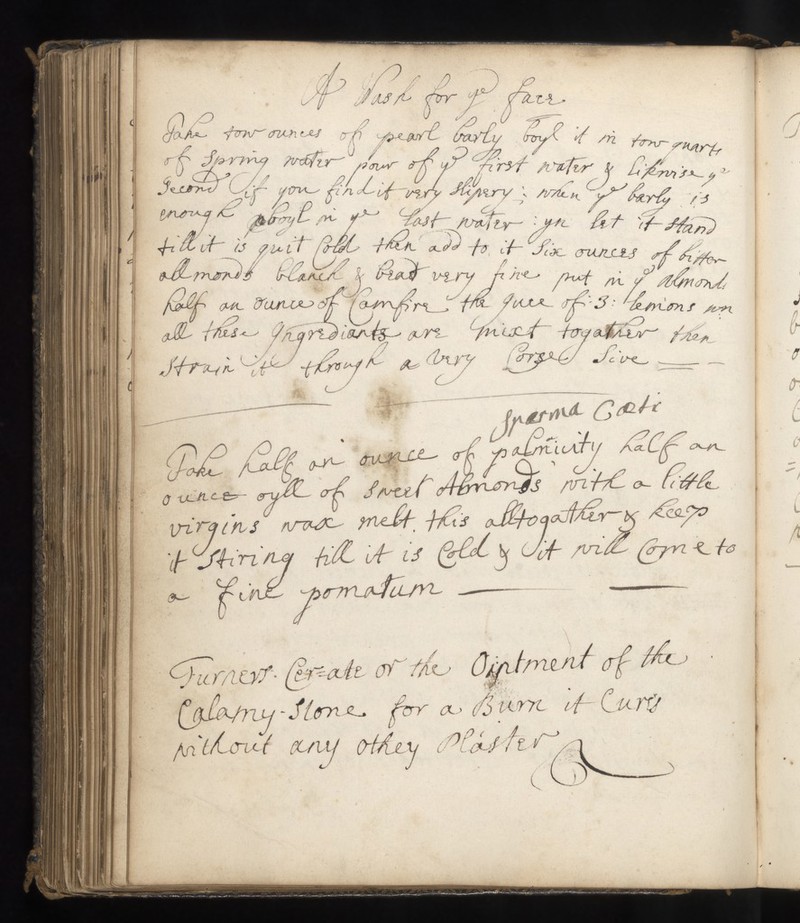 A Wash for ye face
Take tow ounces of pearl barly boyl it in tow quarts
of Spring water pour of ye first water & likewise ye
Second if you find it very slipery ; when ye barly is
enough boyl in ye last water : yn let it stand
till it is quit Cold then add to it Six ounces of bitter
allmonds blanch & beat very fine put in ye Almonds
half an ounce of Camfire the juce of :3: lemons wn
all these Ingrediants are mixt togather then
Strain it through a very Corse Sive
Sparma Cæti
Take half an ounce of palmicity half an
ounce oyll of Sweet Almonds with a little
virgins wax melt this alltogather & keep
it Stiring till it is Cold & it will Come to
a fine pomatum
Turners Cer=ate or the Ointment of the
Calamy-Stone for a Burn it Cures
without any othey Plaster